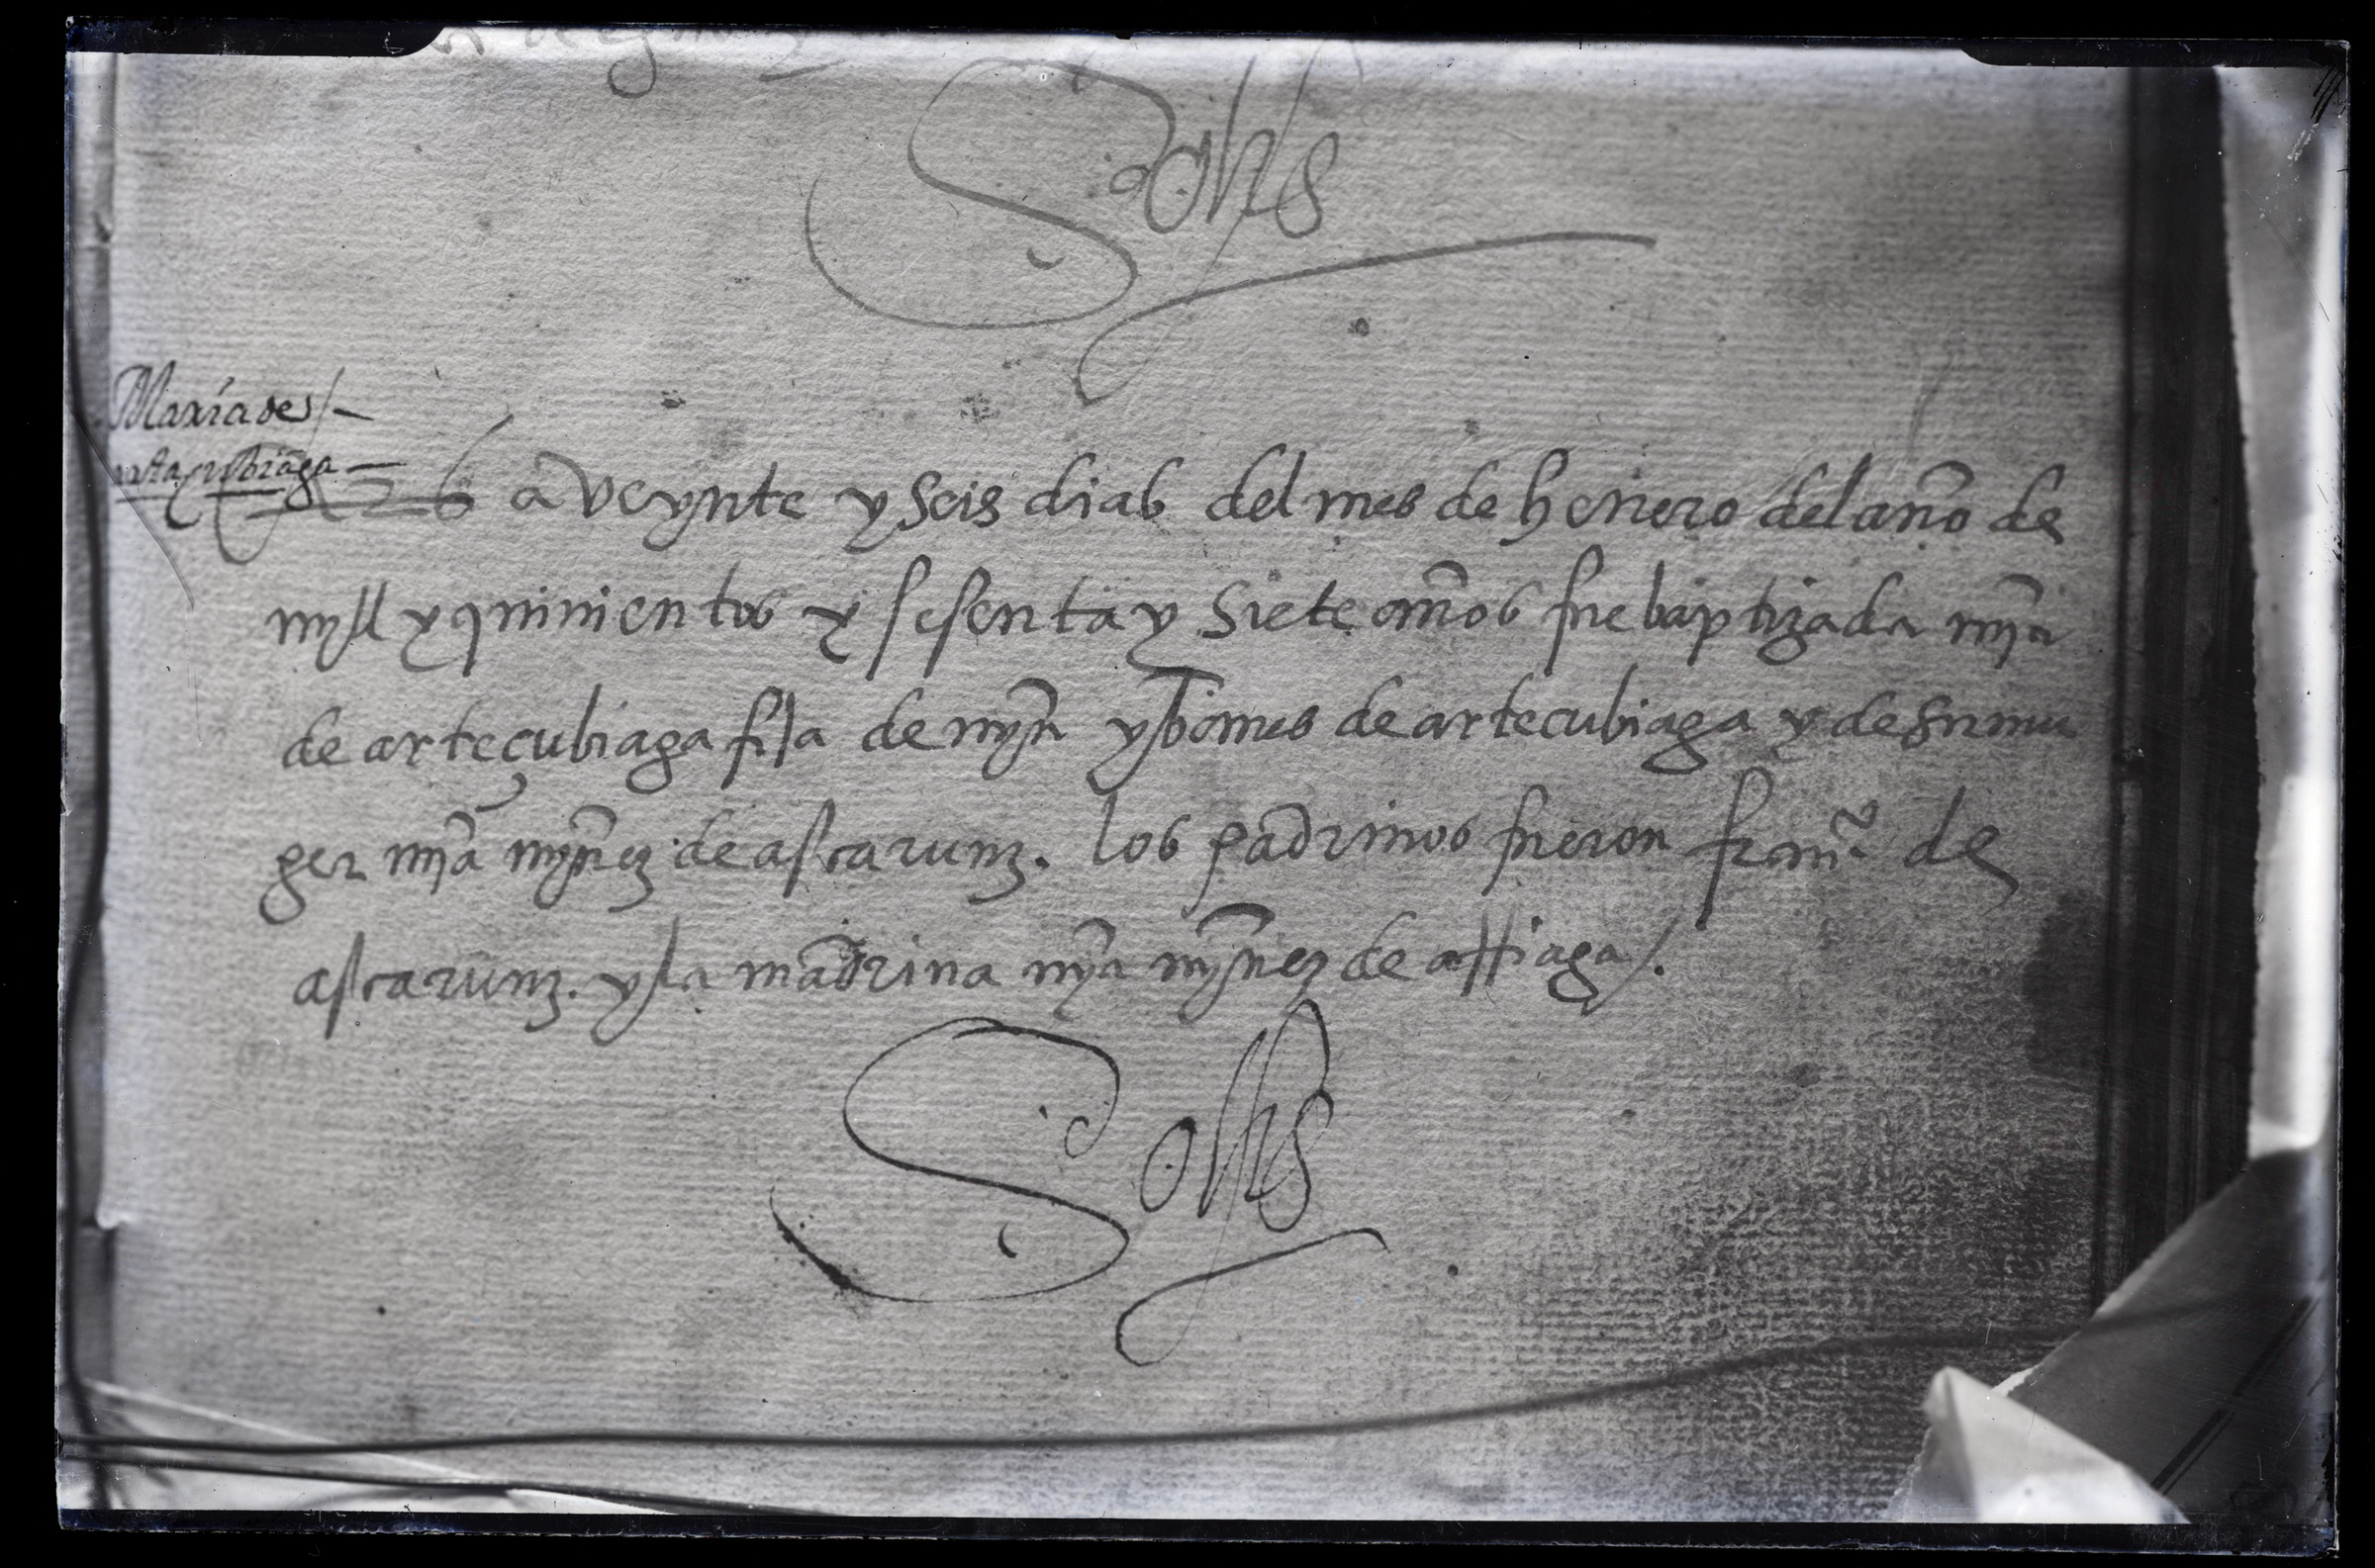 Solis
María de
26 a veynte y seis dias del mes de henero del año de
myll y quinientos y sesenta y siete años fue baptizada mya
de artecubiaga fija de myn ybomes de artecubiaga y de su mu
ger mya mynez de ascarunz. los padrinos fueron franco de
ascarunz. y la madrina mya mynez de
Solis